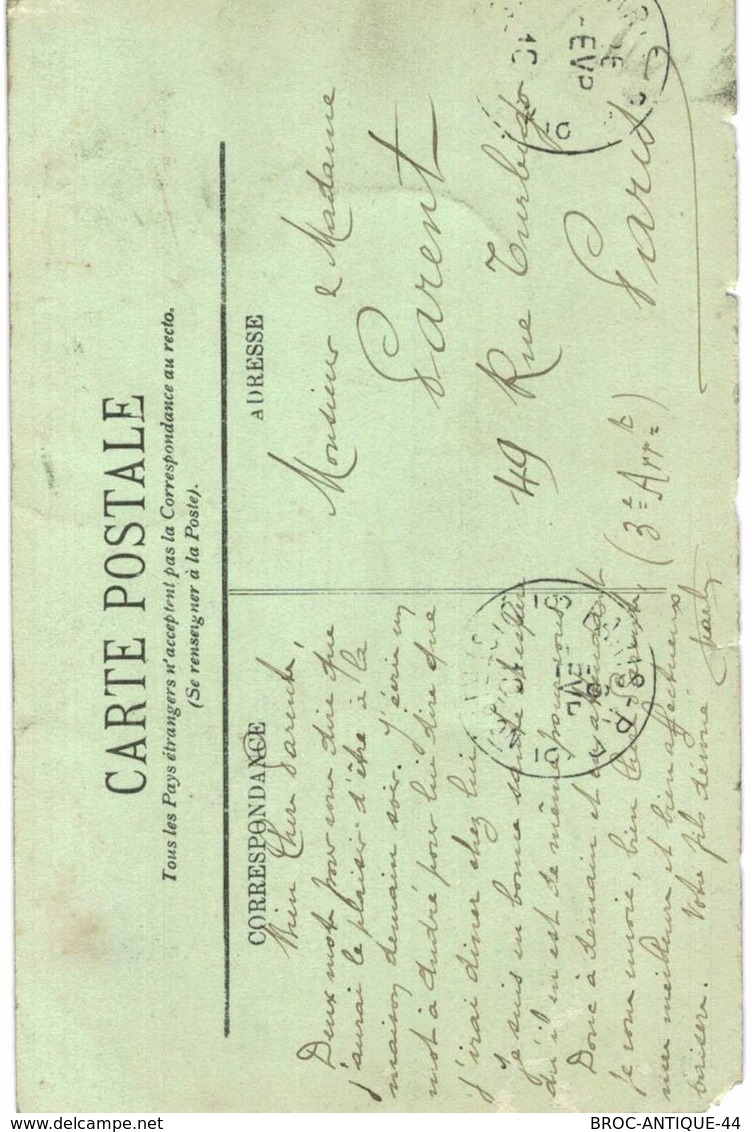 CARTE POSTALE
Tous les Pays étrangers n'acceptent pas la Correspondance au recto.
(Se renseigner à la Poste).
CORRESPONDANCE
Bien Chers Parents,
Deux mot pour vous dire que
j'aurai le plaisir d'être à la
maison demain soir. J'écris un
mot à André pour lui dire que
j'irai diner chez lui.
Je suis en bonne santé et espère
qu'il en est de même pour vous
Donc à demain et en attendant
je vous envoie, bien chers parents,
mes meilleurs et bien affectueux
baisers. Votre fils dévoué
ADRESSE
Monsieur & Madame
Parent
49 Rue Turbigo
Paris
(3e Arrt)
BROC-ANTIQUE-44